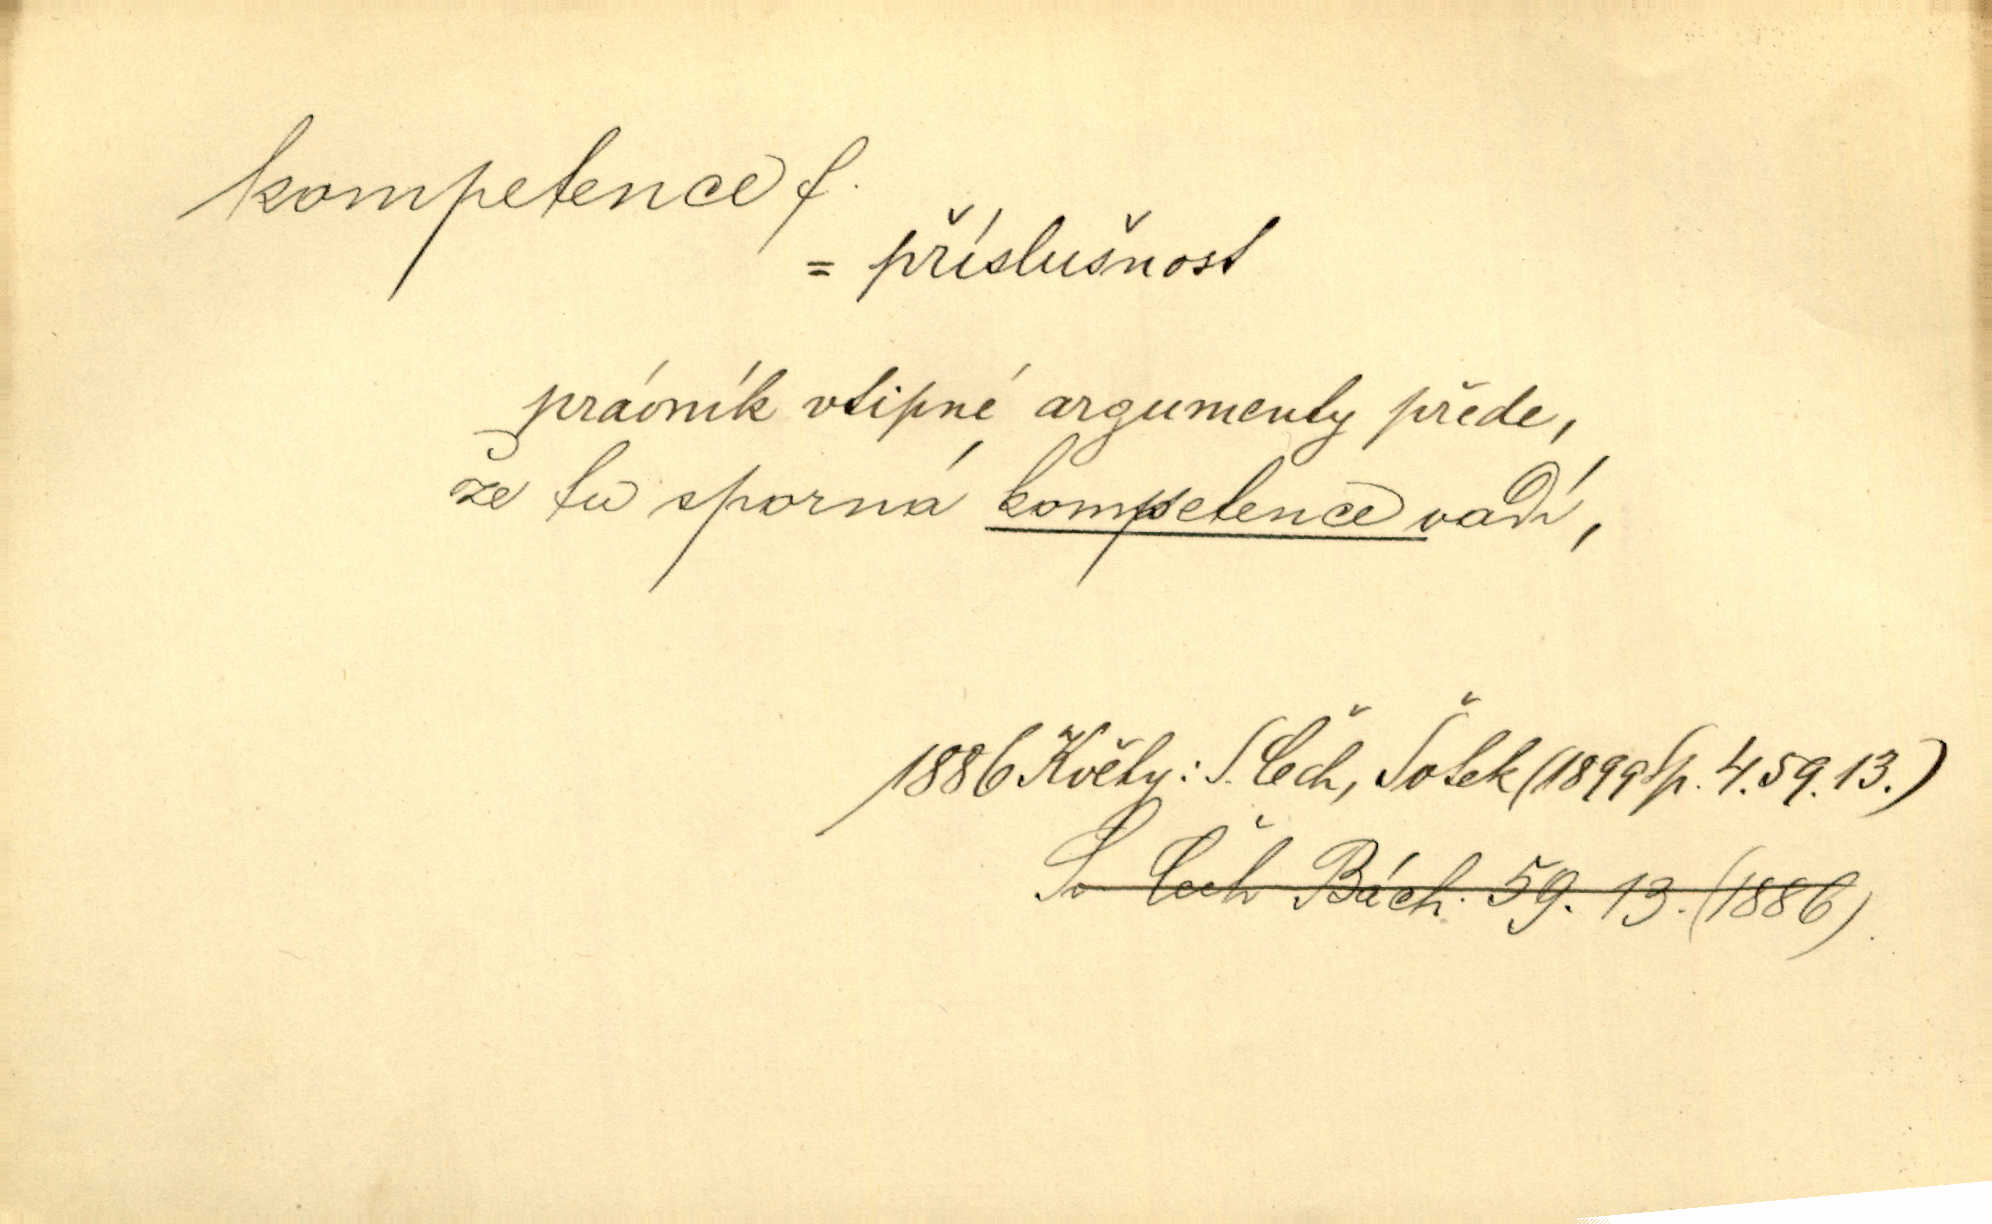 kompetence f.
= příslušnost
právník vtipné argumenty přede,
že tu sporná kompetence vadí,
1886 Květy: S. Čech, Šotek (1899 Sp. 4.59.13.)
Sv Čech Bách. 59. 13. (1886).